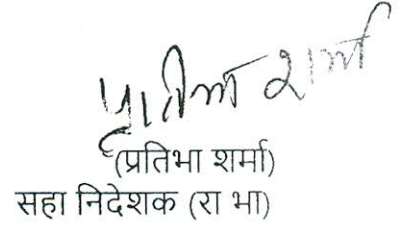 प्रतिभा शर्मा
(प्रतिभा शर्मा)
सहा निदेशक (रा भा)